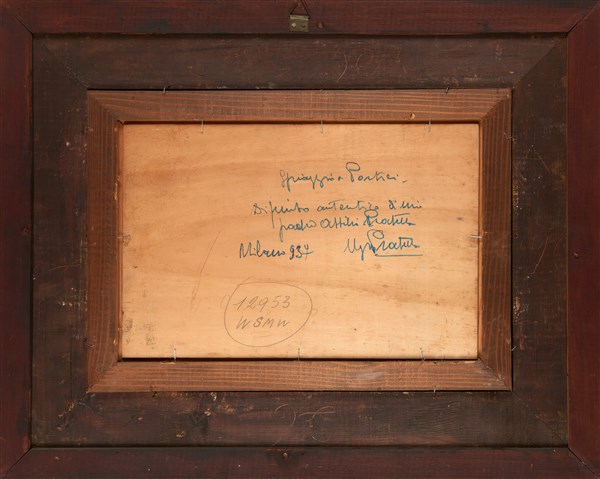 Spiaggia a Portici -
Dipinto autentico di mio
padre Attilio Pratella
Milano 937 Ugo Pratella
12953
WSMW